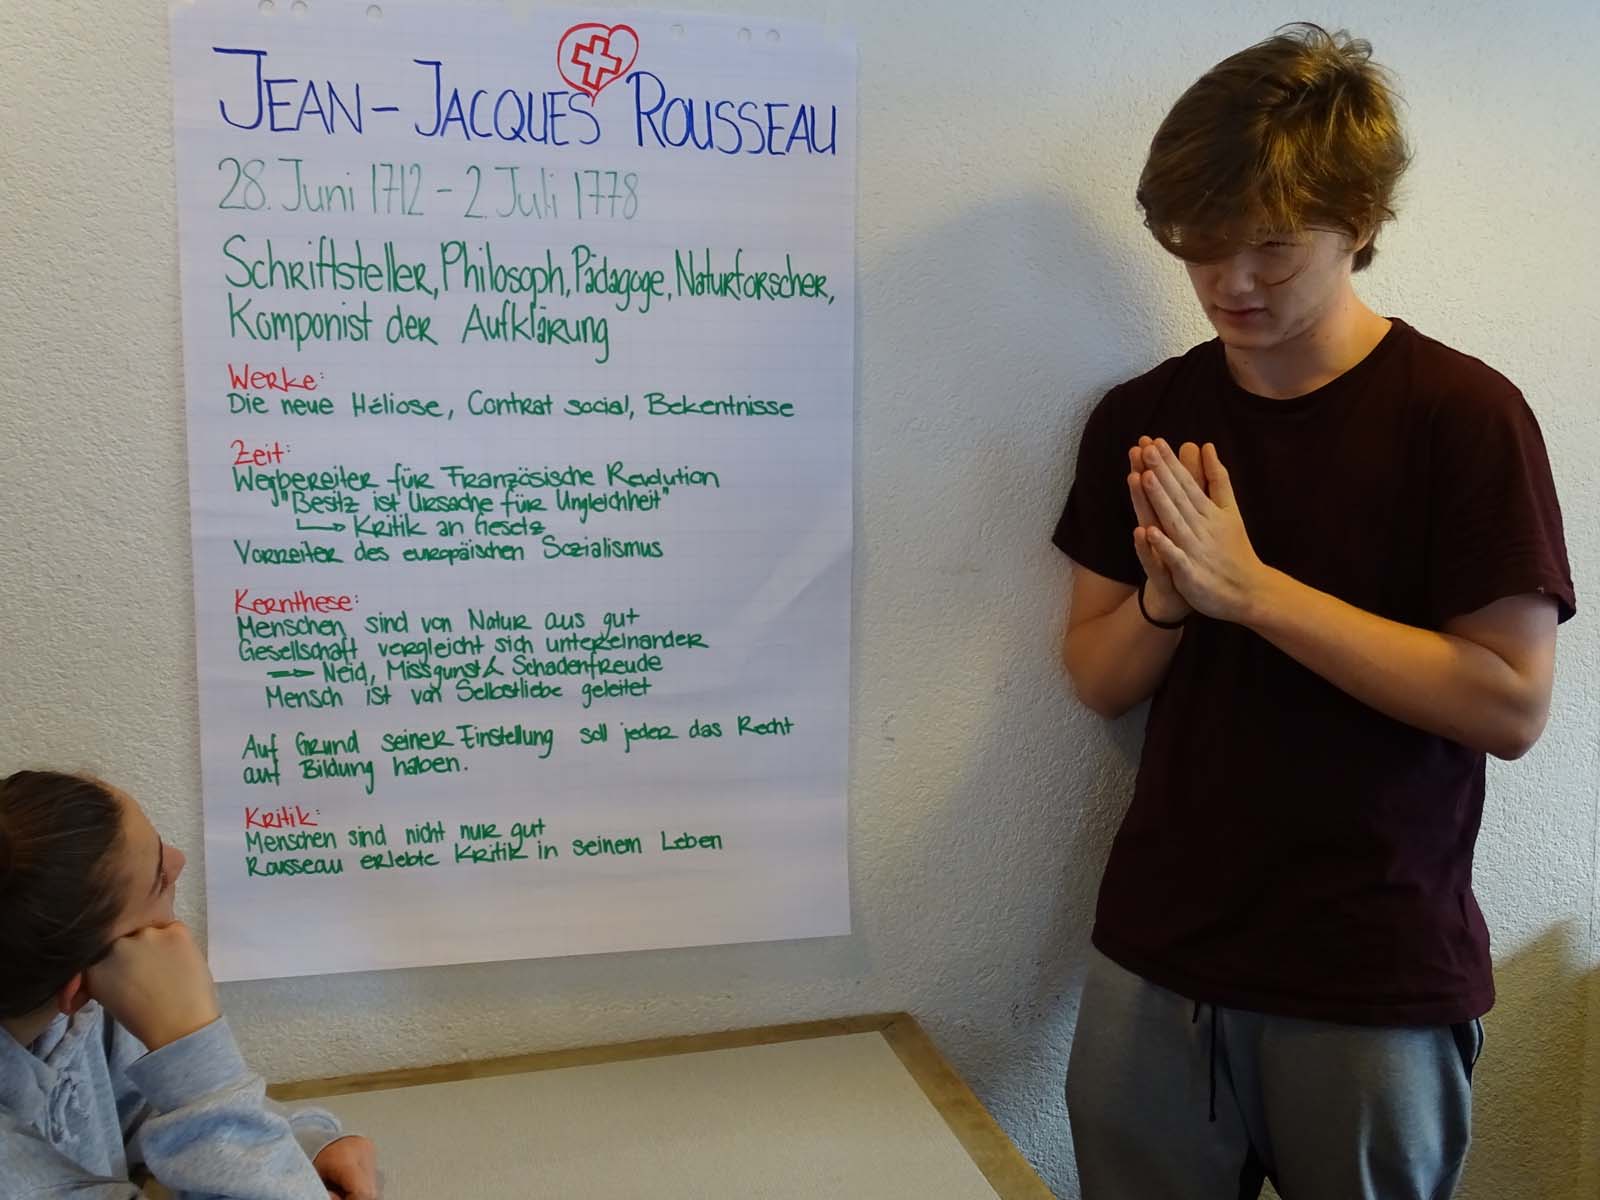 JEAN-JACQUES ROUSSEAU
28. Juni 1712 - 2. Juli 1778
Schriftsteller, Philosoph, Pädagoge, Naturforscher,
Komponist der Aufklärung
Werke:
Die neue Héliose, Contrat social, Bekentnisse
Zeit:
Wegbereiter für Französische Revolution
"Besitz ist Ursache für Ungleichheit"
→ Kritik an Gesetz
Vorreiter des europäischen Sozialismus
Kernthese:
Menschen sind von Natur aus gut
Gesellschaft vergleicht sich untereinander
→ Neid, Missgunst & Schadenfreude
Mensch ist von Selbstliebe geleitet
Auf Grund seiner Einstellung soll jeder das Recht
auf Bildung haben.
Kritik:
Menschen sind nicht nur gut
Rousseau erlebte Kritik in seinem Leben